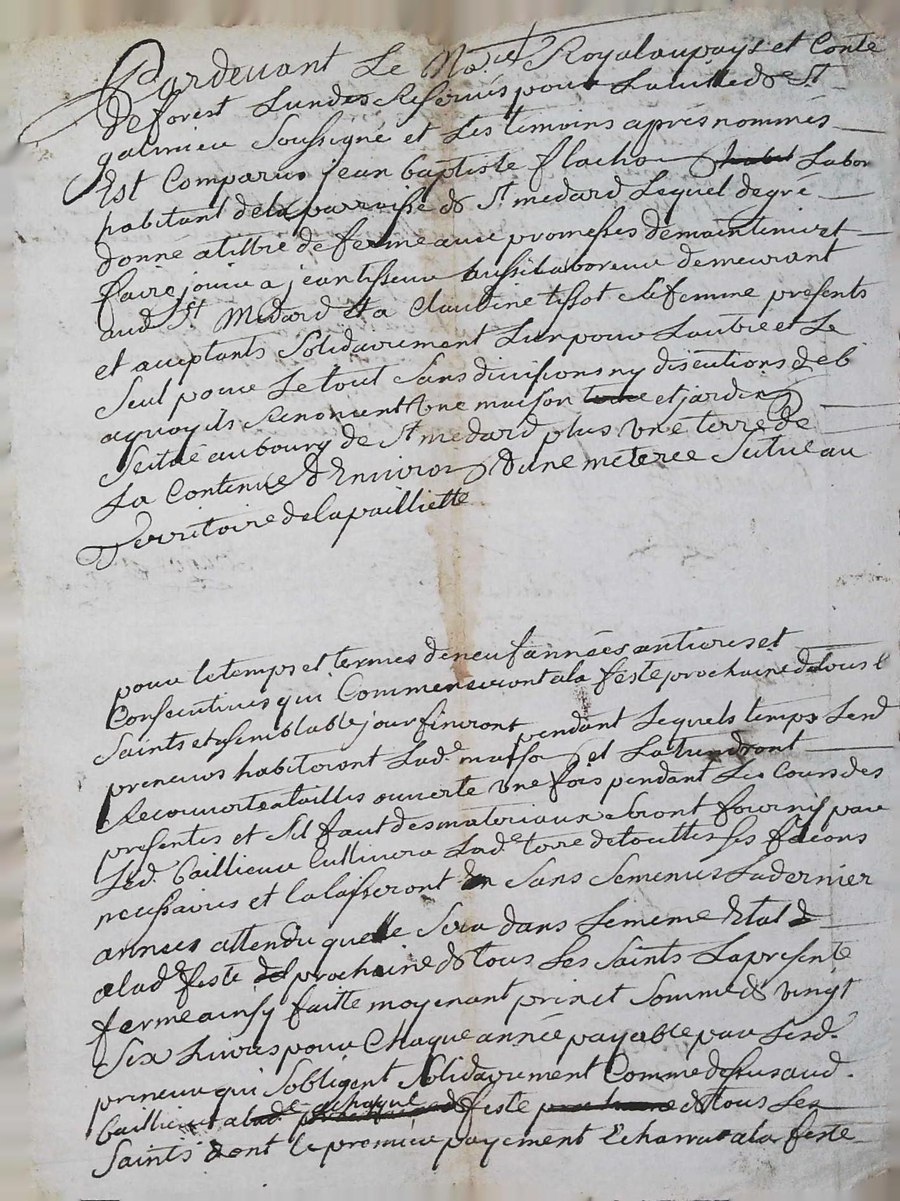 Pardevant Le No.re Royal au pays et Conté
de forest Lundes Reservés pour La ville de St
galmieu Soussigné et Les temoins aprés nommés
Est Comparus jean baptiste flachon Labor
habitant de la parroisse de St medard Lequel de gré
donne a tiltre de ferme avec promesses de maintenir et
faire jouir a jean tisseur aussi Laboreur demeurant
aud. St Medard et a Claudine tissot sa femme presents
et acceptants Solidairement Lun pour Lautre et Le
Seul pour Le tout Sans divisions ny discutions de
a quoy ils Renoncent Une maison et jardin
Scitué au bourg de St medard plus Une terre de
La Contenue d'Environ dune meteree Scitué au
Territoire de la pailliette
pour le temps et termes de neuf années antieres et
Consecutives qui Commenceront a la feste prochaine de tous l
Saints et a semblable jour finiront pendant Lequels temps Lesd
preneurs habiteront Lad.e maison et La tiendront
Recouverte a taillis ouverte Une fois pendant Les Cours des
presentes et Sil faut des materiaux Seront fournis par
Led. bailleur Cultivera Lad.e terre de touttes Ses facons
necessaires et la laisseront Sans Semences La dernier
annees attendu quelle Sera dans Le meme Etat
a lad.e feste prochaine de tous Les Saints La presente
ferme ainsy faitte moyenant prix et Somme de vingt
Six Livres pour Chaque année payable par Lesd.
preneur qui Sobligent Solidairement Comme dessus aud.
bailleur a lad.e chaque feste de tous Les
Saints dont le premier payement Echerra a la feste